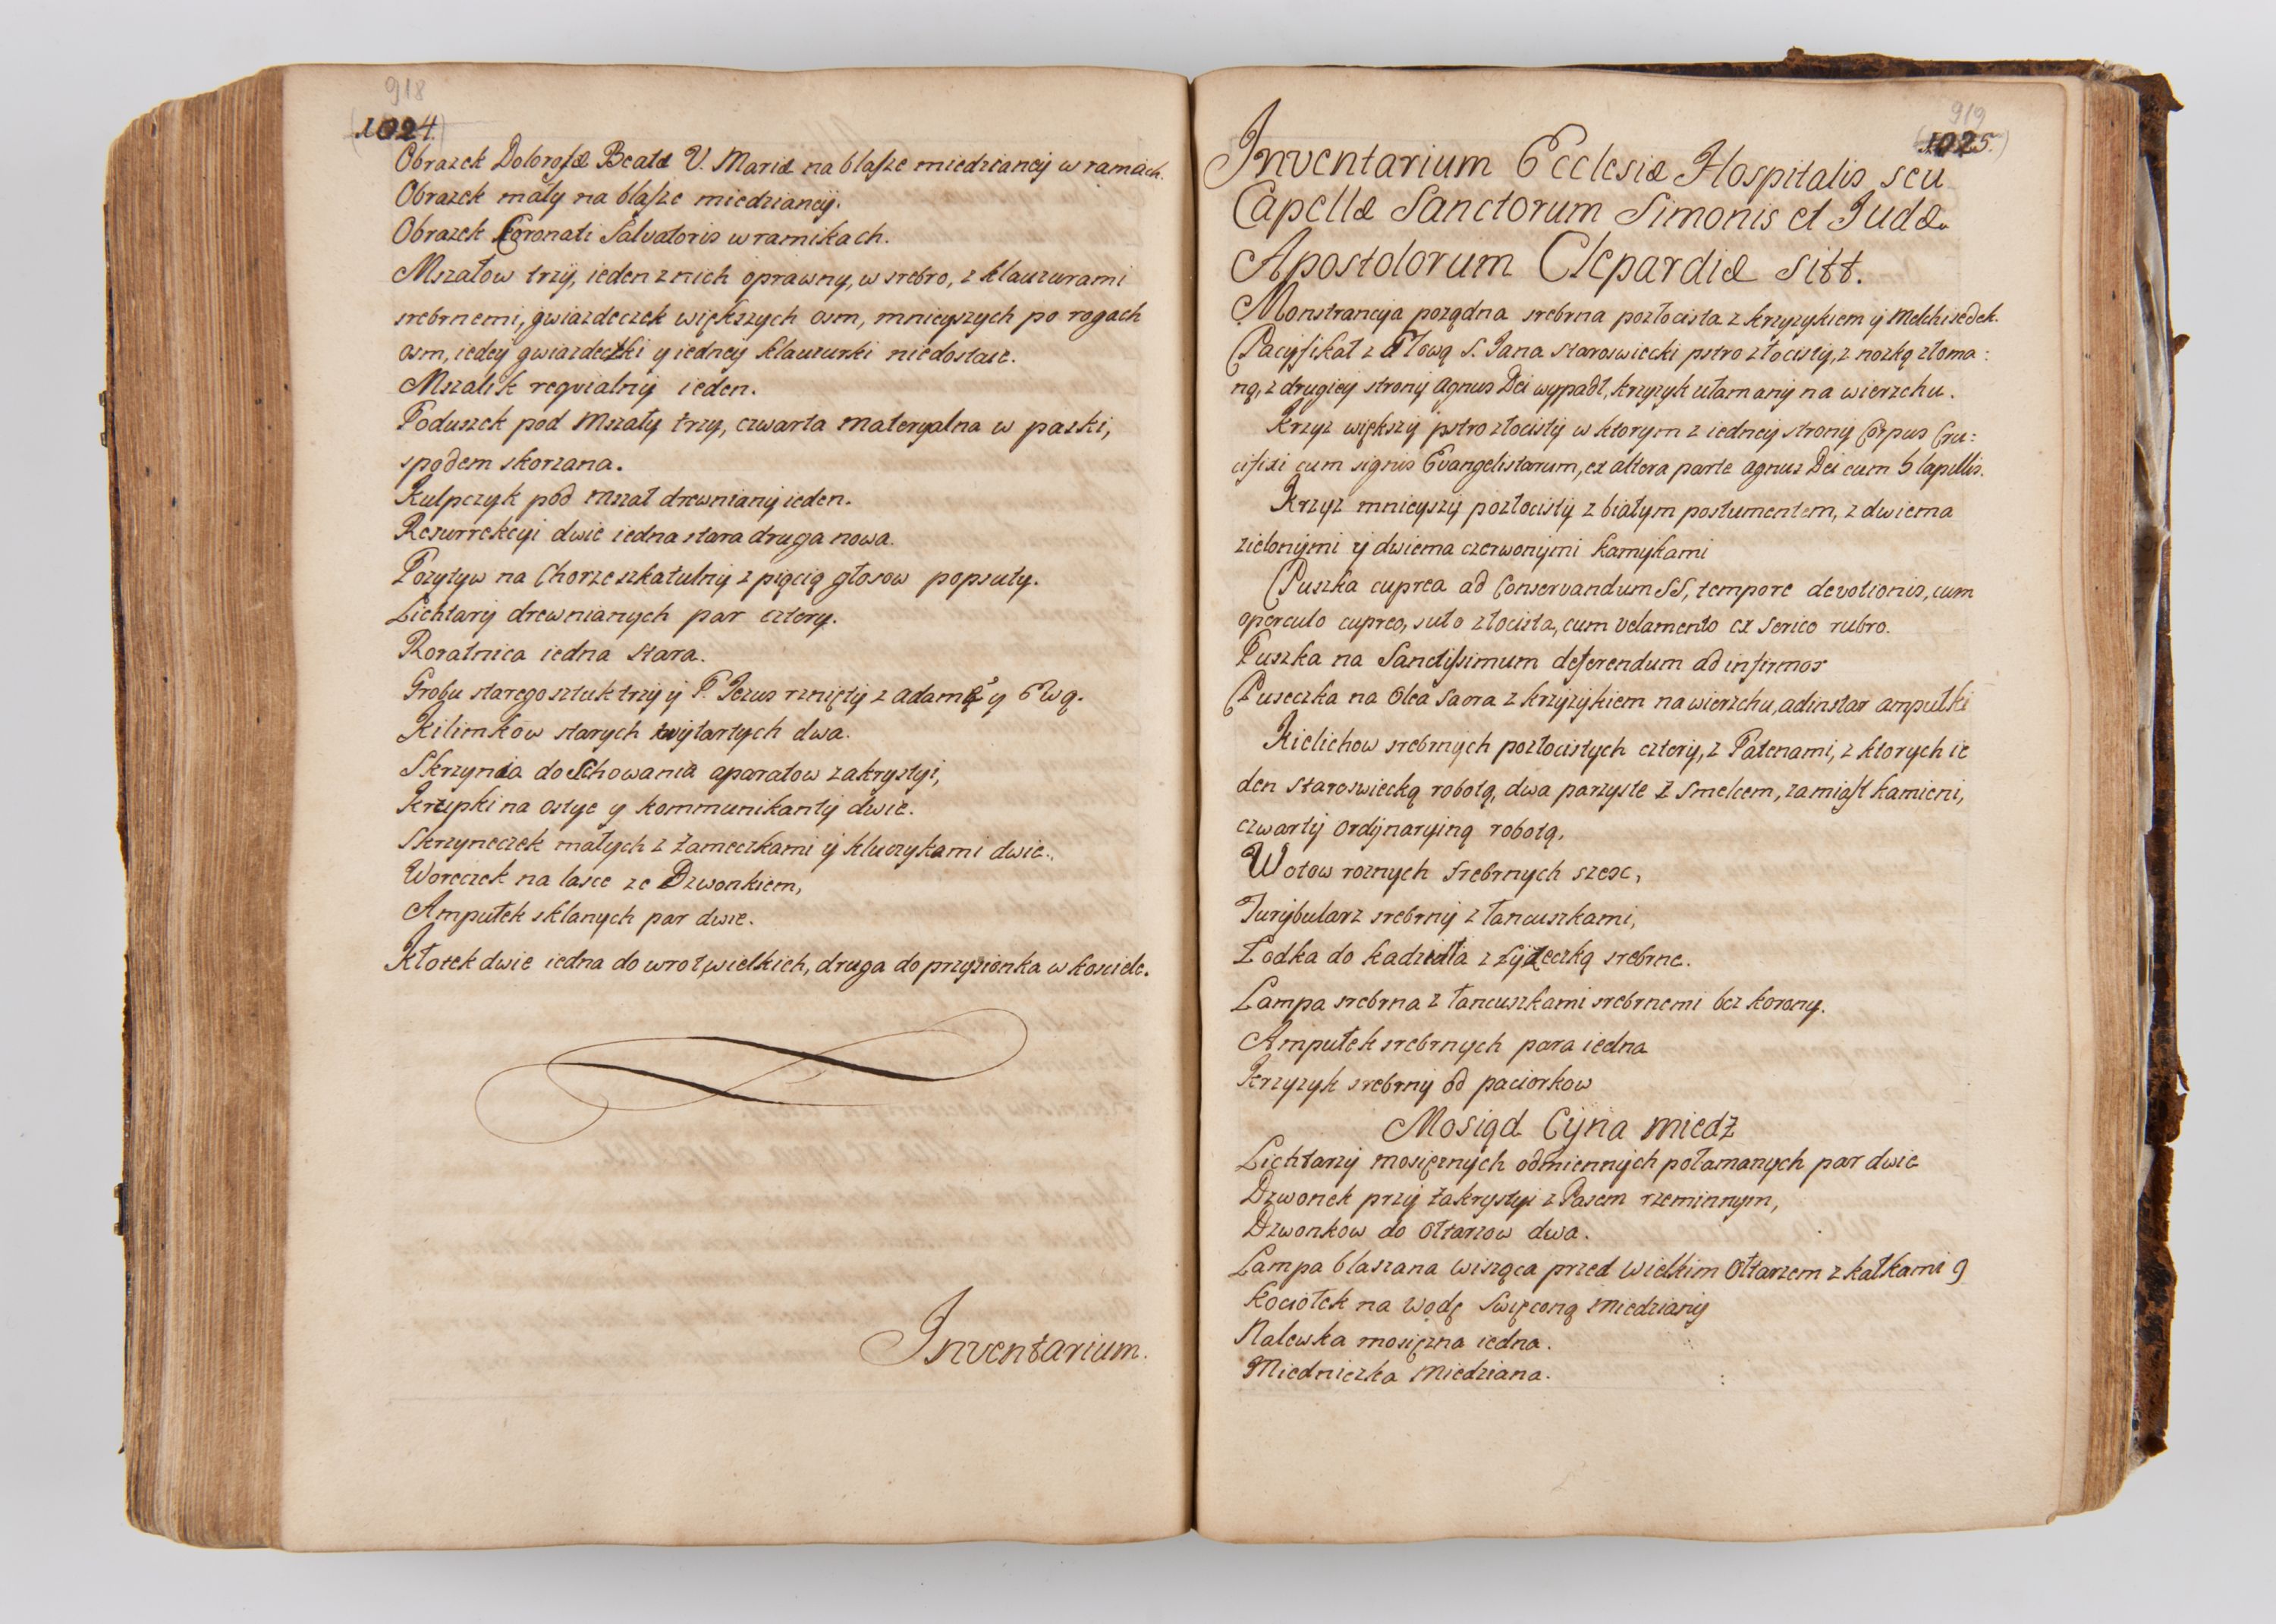 918
1024
Obrazek Dolorosæ Beatæ V. Mariæ na blasze miedzianey w ramach.
Obrazek mały na blasze miedzianey.
Obrazek Coronati Salvatoris w ramikach.
Mszałow trzy, ieden z nich oprawny, w srebro, z klauzurami
srebrnemi, gwiazdeczek większych osm, mnieyszych po rogach
osm, iedey gwiazdeczki y iedney klauzurki niedostaie.
Mszalik requialny ieden.
Poduszek pod Mszały trzy, czwarta materyalna w paski,
spodem skorzana.
Kulpczyk pod Mszał drewniany ieden.
Resurrekcyi dwie iedna stara druga nowa.
Pozytyw na Chorze szkatulny z pięcią głosow popsuty.
Lichtarzy drewnianych par cztery.
Roratnica iedna stara.
Grobu starego sztuk trzy y P. Jezus rznięty z Adamę y Ewą.
Kilimkow starych wytartych dwa.
Skrzynia do Schowania aparatow zakrystyi,
Krzepki na ostye y kommunikanty dwie.
Skrzyneczek małych z zameczkami y kluczykami dwie.
Woreczek na lasce ze Dzwonkiem,
Ampułek sklanych par dwie.
Kłotek dwie iedna do wrot wielkich, druga do przysionka w kosciele.
Inventarium.
919
1025.
Inventarium Ecclesiæ Hospitalis seu
Capellæ Sanctorum Simonis et Judæ
Apostolorum Clepardiæ sitt.
Monstrancyia porządna srebrna pozłocista z krzyzykiem y Melchisedek.
Pacyfikał z Głową S. Jana staroswiecki pstro złocisty, z nozką złoma:
ną, z drugiey strony Agnus Dei wypadł, krzyzyk ułamany na wierzchu.
Krzyz większy pstro złocisty w ktorym z iedney strony Corpus Cru:
cifixi cum signis Evangelistarum, ex altera parte Agnus Dei cum 5 lapillis.
Krzyz mnieyszy pozłocisty z białym postumentem, z dwiema
zielonymi y dwiema czerwonymi kamykami
Puszka cuprea ad Conservandum SS, tempore devotionis, cum
operculo cupreo, suto złocista, cum velamento ex serico rubro.
Puszka na Sanctissimum deferendum ad infirmos
Puseczka na Olea Sacra z krzyzykiem na wierzchu, adinstar ampułki
Kielichow srebrnych pozłocistych cztery, z Patenami, z ktorych ie
den staroswiecką robotą, dwa parzyste z Smelcem, zamiast kamieni,
czwarty ordynaryiną robotą,
Wotow roznych srebrnych szesc,
Turybularz srebrny z łancuszkami,
Łodka do kadzidła z łyzeczką srebrne.
Lampa srebrna z łancuszkami srebrnemi bez korony.
Ampułek srebrnych para iedna
Krzyzyk srebrny od paciorkow
Mosiąd Cyna miedź
Lichtarzy mosięznych odmiennych połamanych par dwie
Dzwonek przy zakrystyi z Pasem rzeminnym,
Dzwonkow do Ołtarzow dwa.
Lampa blaszana wisząca przed wielkim Ołtarzem z kałkami 9
Kociołek na wodę święconą miedziany
Nalewka mosięzna iedna.
Miedniczka miedziana.